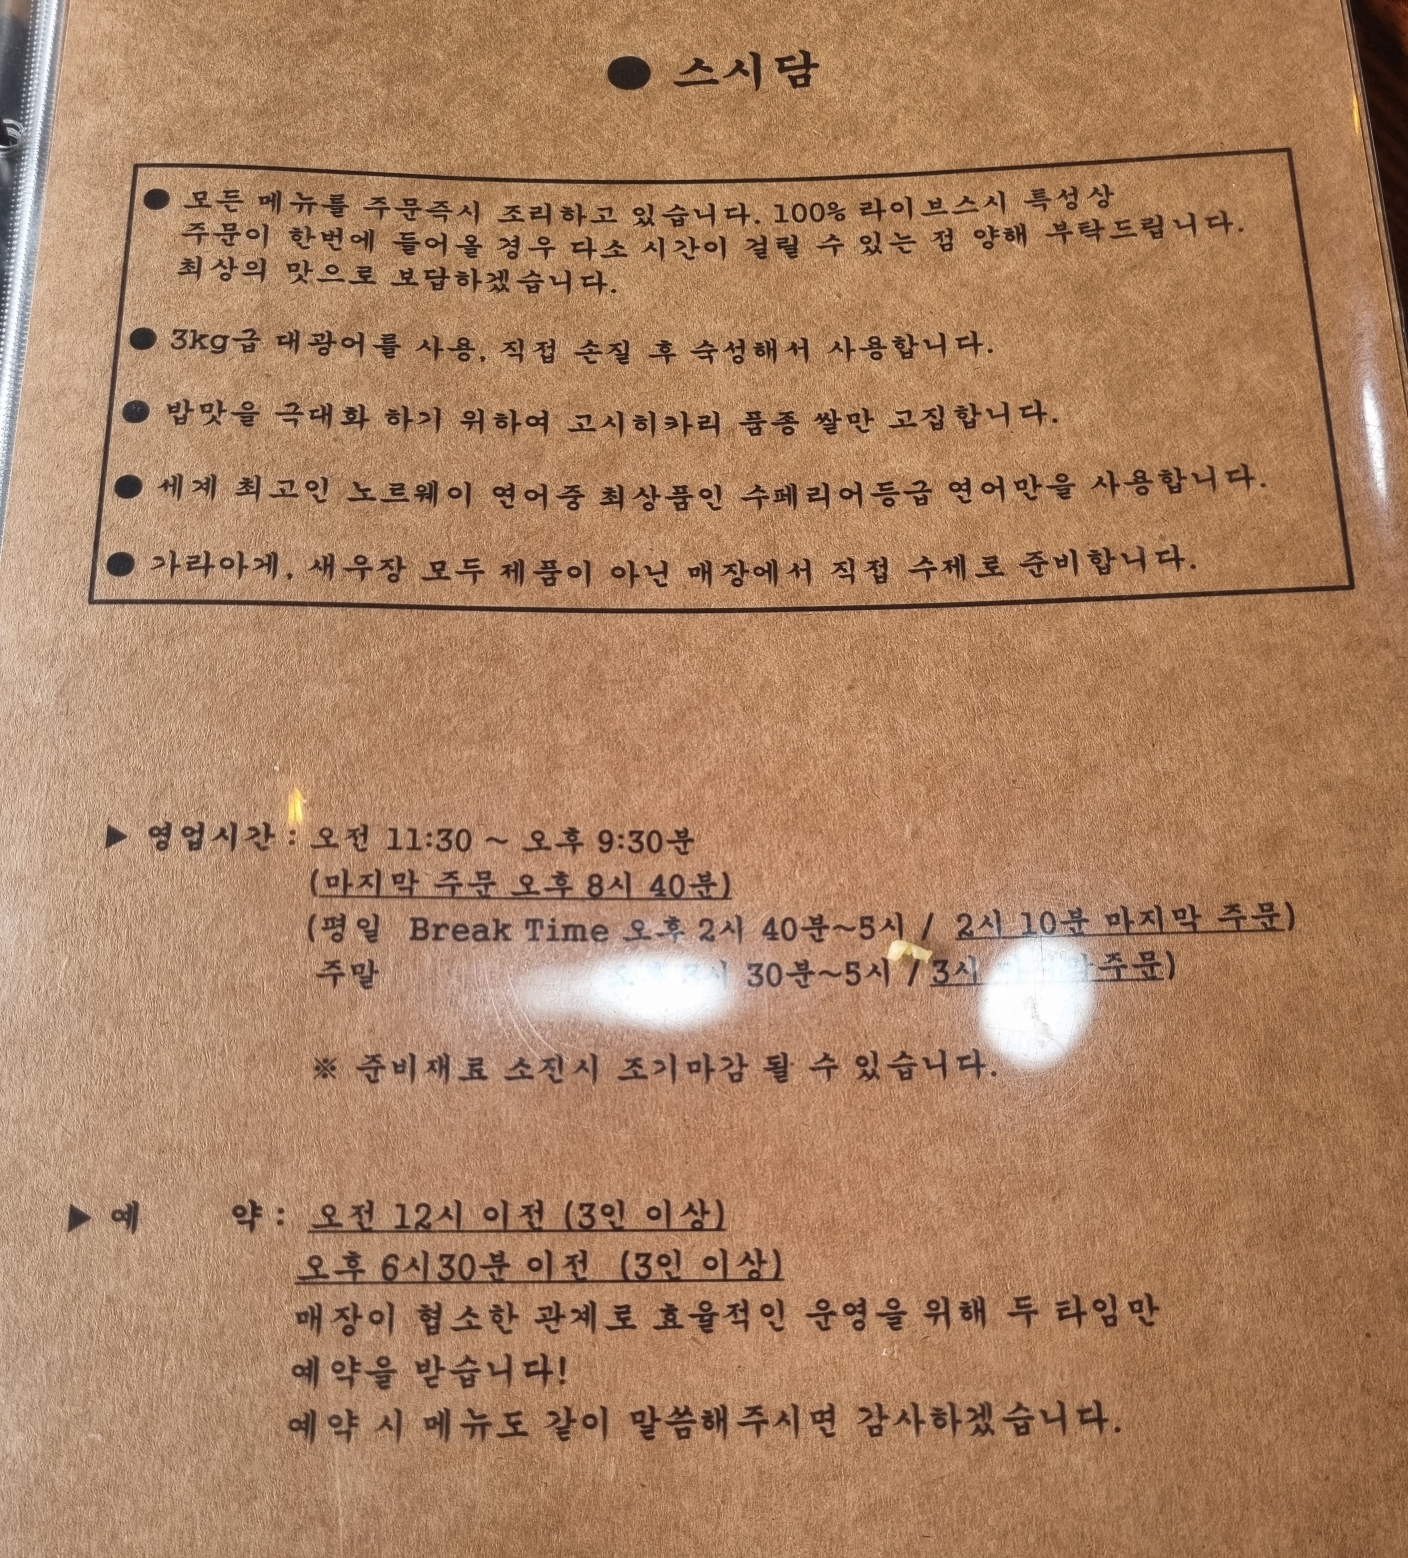 ● 스시담
● 모든 메뉴를 주문즉시 조리하고 있습니다. 100% 라이브스시 특성상
주문이 한번에 들어올 경우 다소 시간이 걸릴 수 있는 점 양해 부탁드립니다.
최상의 맛으로 보답하겠습니다.
● 3kg급 대광어를 사용, 직접 손질 후 숙성해서 사용합니다.
● 밥맛을 극대화 하기 위하여 고시히카리 품종 쌀만 고집합니다.
● 세계 최고인 노르웨이 연어중 최상품인 수페리어등급 연어만을 사용합니다.
● 가라아게, 새우장 모두 제품이 아닌 매장에서 직접 수제로 준비합니다.
▶ 영업시간 : 오전 11:30 ~ 오후 9:30분
(마지막 주문 오후 8시 40분)
(평일 Break Time 오후 2시 40분~5시 / 2시 10분 마지막 주문)
주말 30분~5시 / 3시 주문)
※ 준비재료 소진시 조기마감 될 수 있습니다.
▶ 예 약 : 오전 12시 이전 (3인 이상)
오후 6시30분 이전 (3인 이상)
매장이 협소한 관계로 효율적인 운영을 위해 두 타임만
예약을 받습니다!
예약 시 메뉴도 같이 말씀해주시면 감사하겠습니다.